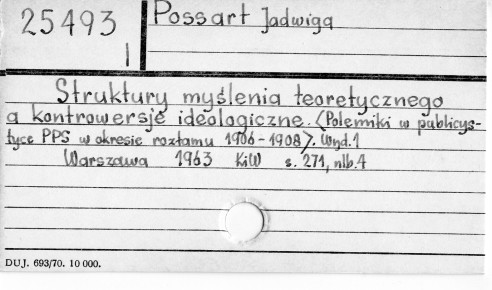 25493
I
Possart Jadwiga
Struktury myślenia teoretycznego
a kontrowersje ideologiczne. (Polemiki w publicys-
tyce PPS w okresie rozłamu 1906-1908). Wyd. 1
Warszawa 1963 KiW s. 271, nlb. 4
DUJ. 693/70. 10 000.